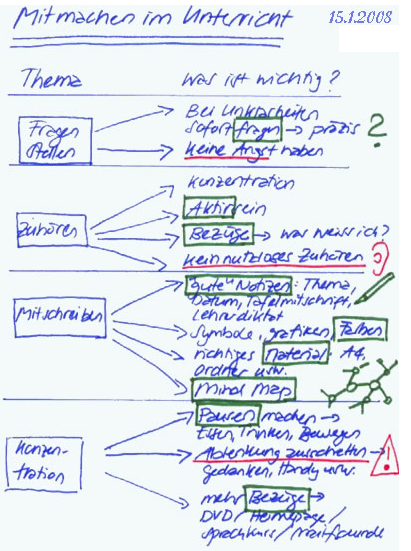 Mitmachen im Unterricht 15.1.2008
Thema Was ist wichtig?
Fragen
stellen
Bei Unklarheiten
sofort fragen → präzis ?
Keine Angst haben
Zuhören
Konzentration
Aktiv sein
Bezüge → was weiss ich?
Kein nutzloses Zuhören
Mitschreiben
"gute" Notizen: Thema,
Datum, Tafelmitschrift,
Lehrerdiktat
Symbole, grafiken, Farben
richtiges Material: A4,
Ordner usw.
Mind Map
Konzen-
tration
Pausen machen →
Essen, Trinken, Bewegen
Ablenkung ausschalten → !
Gedanken, Handy usw.
mehr Bezüge →
DVD / Homepage /
Sprachkurs /